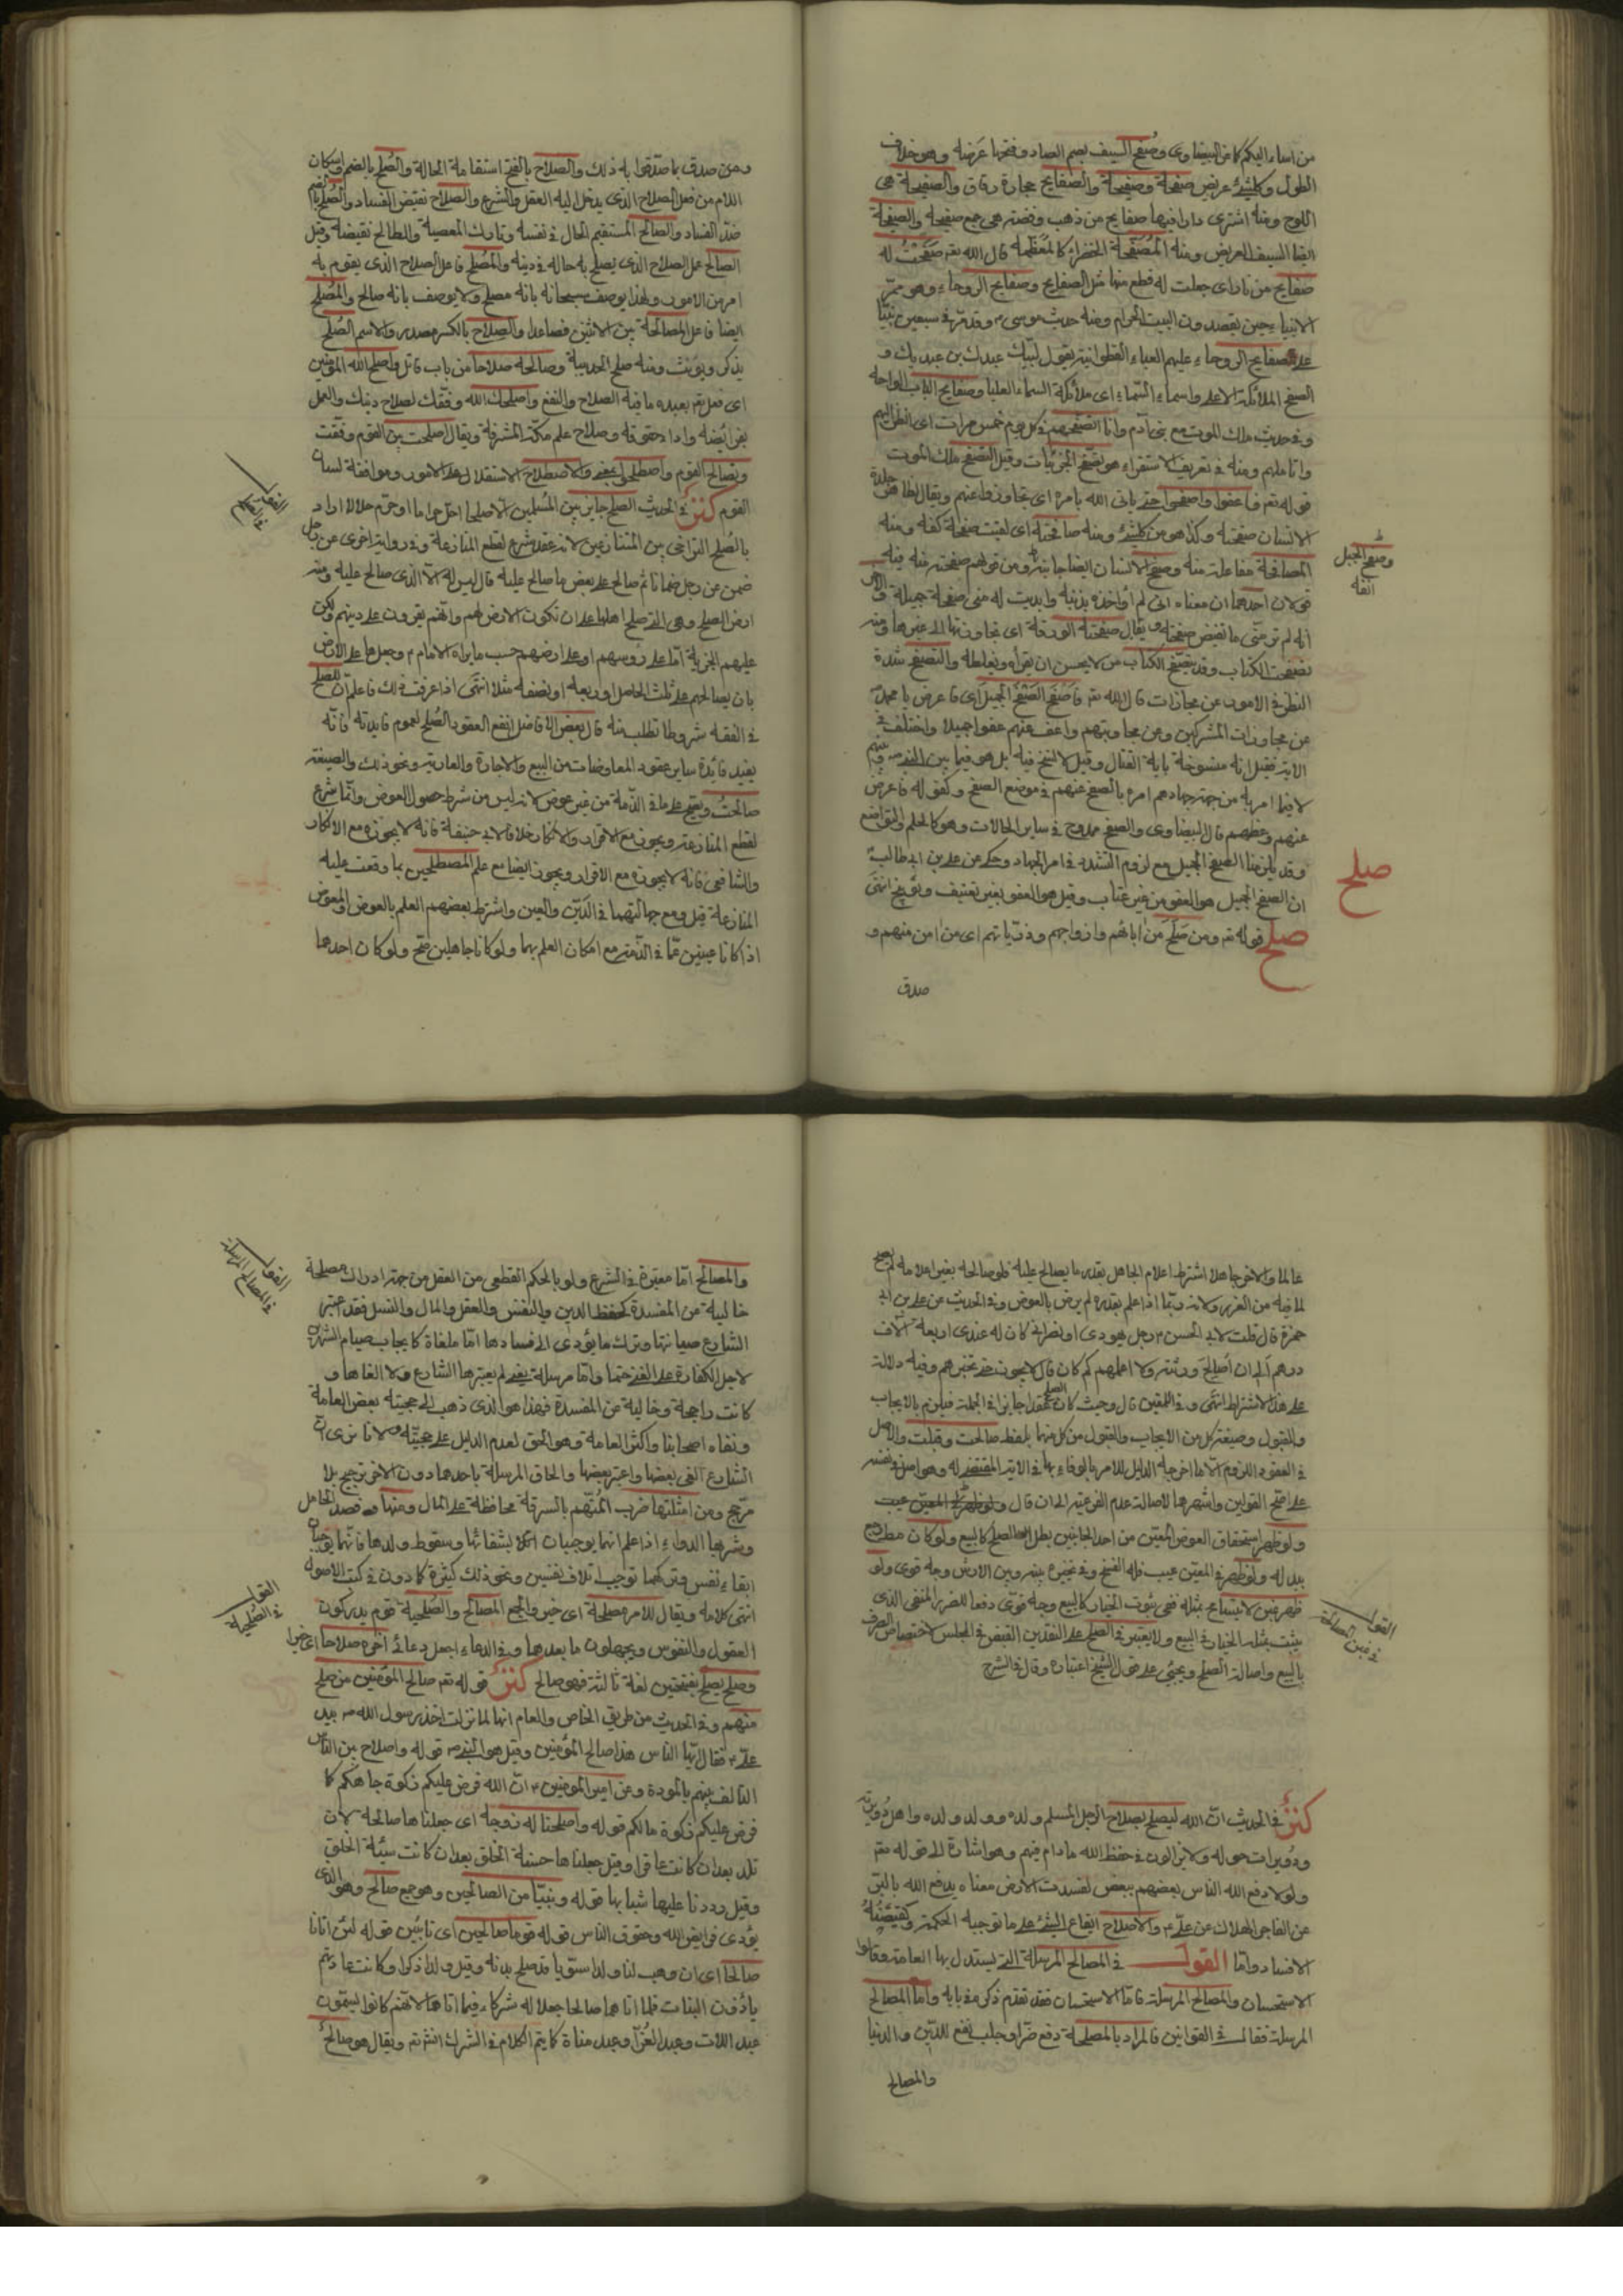 من اساء اليكم كما عن البيضاوى وصُفح السيف بضم الصاد وفتحها عرضه وهو خلاف
الطول وكل شئ عريض صفحة وصفيحة والصفايح حجارة رقاق والصفيحة هى
اللوح ومنه اشترى دارا فيها صفايح من ذهب وفضة هى جمع صفيحة والصفيحة
ايضا السيف العريض ومنه المُصَفَّحة الخضراء كالمُعَظَّمة قال الله تعم صفحتُ له
صفايح من نار اى جعلت له قطع منها مثل الصفايح وصفايح الروحاء وهو ممرّ
الانبياء حين يقصدون البيت الحرام ومنه حديث موسى ع وقد مرّ فى سبعين نبيّا
على صفايح الروحاء عليهم العباء القطوانية يقول لبّيك عبدك بن عبديك و
الصفيح الملائكة الاعلى واسماء السماء اى ملائكة السماء العليا وصفايح الباب الواحه
وفى حديث ملك الموت مع بنى آدم وانا اتصفّحهم فى كل يوم خمس مرات اى انظر اليهم
واتاملهم ومنه فى تعريف الاستقراء هو تصفّح الجزئيات وقيل التصفح ملك الموت
قوله تعم فاعفوا واصفحوا حتى ياتى الله بامره اى تجاوزوا عنهم ويقال لظاهر جلدة
الانسان صفحته وكذا هو من كل شئ ومنه صافحته اى لقيت صفحة كفّه ومنه
المصافحة مفاعلة منه وصفح الانسان ايضا جانبه ومن قولهم صفحت عنه فيه
وصفح الجبل
قولان احدهما ان معناه انى لم اؤاخذه بذنبه وابديت له منى صفحة جميلة
انه لم تر منّى ما تقبض صفحته ويقال صفحت الورقة اى تجاوزتها الى غيرها ومنه
تصفحت الكتاب وقد يتصفّح الكتاب من لا يحسن ان يقرأه ويغلطه والتصفح شدة
النظر فى الامور عن مجازات قال الله تعم فاصفح الصفح الجميل اى فاعرض يا محمد
عن مجازات المشركين وعن مجاوبتهم واعف عنهم عفوا جميلا واختلف فى
الآية فقيل انه منسوخة باية القتال وقيل لا نسخ فيه بل هو فيما بين النبى ص وبينهم
لا فيما امر به من جهة جهادهم امره بالصفح عنهم فى موضع الصفح وكقوله فاعرض
عنهم وعظهم قال البيضاوى والصفح ممدوح فى ساير الحالات وهو كالحلم والتواضع
وقد يلزمنا الصفح الجميل مع لزوم التشدد فى امر الجهاد وحكى عن على بن ابى طالب
ان الصفح الجميل هو العفو من غير عتاب وقيل هو العفو بغير تعنيف وتوبيخ انتهى
صلح
صلح قوله تعم ومن صَلَح من ابائهم وازواجهم وذرياتهم اى من امن منهم و
صدق
ومن صدق بما صدّقوا به ذلك والصلاح بالفتح استقامة الحالة والصُلح بالضم واسكان
اللام من فعل الصلاح الذى يدعو اليه العقل والشرع والصلاح نقيض الفساد والصُلح بالضم
ضدّ الفساد والصالح المستقيم الحال فى نفسه وتارك المعصية والطالح نقيضه وقيل
الصالح عمل الصلاح الذى يصلح به حاله فى دينه والمُصلح فاعل الصلاح الذى يقوم به
امر من الامور ولهذا يوصف سبحانه بانه مصلح ولا يوصف بانه صالح والمُصلح
ايضا فاعل المصالحة بين الاثنين فصاعدا والصلاح بالكسر مصدر والاسم الصُلح
يذكر ويؤنث ومنه صلح الحديبية وصالحه صلاحا من باب قاتل واصلح الله المؤمنين
اى فعل تعم بعبده ما فيه الصلاح والنفع واصلحك الله وفّقك لصلاح دينك والعمل
بفرائضه واداء حقوقه وصلاح علم مكة المشرفة ويقال اصلحت بين القوم وفّقت
وتصالح القوم واصطلحوا بمعنى والاصطلاح الاستقلال على الامور وموافقة لسان
القوم كنزٌ فى الحديث الصلح جايز بين المُسلمين الا صلحا احلّ حراما او حرّم حلالا اراد
بالصُلح التراضى بين المتنازعين لانه عقد شرع لقطع المنازعة وفى رواية اخرى عن رجل
ضمن عن رجل ضمانا ثم صالح على بعض ما صالح عليه قال ليس له الا الذى صالح عليه ومنه
ارض الصلح وهى التى صلح اهلها على ان تكون الارض لهم وانهم يقرون على دينهم ولكن
عليهم الجزية امّا على رؤسهم او على ارضهم حسب ما يراه الامام ع وجعلها على الارض
بان يصالحهم على ثلث الحاصل او ربعه او نصفه مثلا انتهى اذا عرفت ذلك فاعلم ان للصلح
فى الفقه شروطا تطلب منه قال بعض الافاضل انفع العقود الصُلح لعموم فايدته فانه
يفيد فائدة ساير عقود المعاوضات من البيع والاجارة والعارية ونحو ذلك والصيغة
صالحتُ ويصح على ما فى الذمة من غير عوض لانه ليس من شرطه حصول العوض وانما شرع
لقطع المنازعة ويجوز مع الاقرار والانكار خلافا لابى حنيفة فانه لا يجوزه مع الانكار
والشافعى فانه لا يجوزه مع الاقرار ويجوز ايضا مع علم المصطلحين بما وقعت عليه
المنازعة قيل ومع جهالتهما فى الدَين والعين واشترط بعضهم العلم بالعوض والمعوض
اذا كانا عينين عمّا فى الذمة مع امكان العلم بهما ولو كانا جاهلين صح ولو كان احدهما
عالما والاخر جاهلا اشترط اعلام الجاهل بقدر ما يصالح عليه فلو صالحه بغير اعلامه لم يصح
لما فيه من الغرر ولانه ربّما اذا علم بقدره لم يرض بالعوض وفى الحديث عن على بن ابى
حمزة قال قلت لابى الحسن ع رجل يهودى او نصرانى كان له عندى اربعة آلاف
درهم أَلى ان اُصالحَ ورثته ولا اعلمهم كم كان قال لا يجوز حتى تخبرهم وفيه دلالة
على هذا الاشتراط انتهى وفى اللمعتين قال وحيث كان الصلح عقدا جايزا فى الجملة فيلزم بالايجاب
والقبول وصيغة كل من الايجاب والقبول من كل منهما بلفظ صالحت وقبلت والاصل
فى العقود اللزوم الا ما اخرجه الدليل للامر بالوفاء بها فى الآية المقتضى له وهو اصل فى نفسه
على اصح القولين واشهرهما لاصالة عدم الفرعية الى ان قال
ولو ظهر استحقاق العوض المعين من احد الجانبين بطل الصلح كالبيع ولو كان مطلقا رجع
ببدله ولو ظهر فى المعين عيب فله الفسخ وفى تخييره بينه وبين الارش وجه قوى ولو
ظهر غبن لا يتسامح بمثله ففى ثبوت الخيار كالبيع وجه قوىّ دفعا للضرر المنفى الذى
يثبت بمثله الخيار فى البيع ولا يعتبر فى الصلح على النقدين القبض فى المجلس لاختصاص الصرف
بالبيع واصالة الصلح ويجئ على قول الشيخ اعتباره وقال فى الشرح
كنزٌ فى الحديث ان الله ليصلح بصلاح الرجل المسلم ولده وولد ولده واهل دُويرته
ودُويرات حوله ولا يزالون فى حفظ الله ما دام فيهم وهو اشارة الى قوله تعم
ولولا دفع الله الناس بعضهم ببعض لفسدت الارض معناه يدفع الله بالبرّ
عن الفاجر الهلاك عن علىّ ع والاصلاح ايقاع الشئ على ما توجبه الحكمة ونقيضُهُ
الافساد وامّا القول فى المصالح المرسلة التى يستدل بها العامة وقالوا
الاستحسان والمصالح المرسلة فامّا الاستحسان فقد تقدم ذكره فى بابه وامّا المصالح
المرسلة فقال فى القوانين فالمراد بالمصلحة دفع ضرّ او جلب نفع للدين والدنيا
والمصالح
والمصالح امّا معتبرة فى الشرع ولو بالحكم القطعى من العقل من جهة ادراك مصلحة
خالية من المفسدة كحفظ الدين والنفس والعقل والمال والنسل فقد اعتبر
الشارع صيانتها وترك ما يؤدى الى فسادها امّا ملغاة كايجاب صيام الشهرين
لاجل الكفارة على الغنى حتما وامّا مرسلة يعنى لم يعتبرها الشارع ولا الغاها و
كانت راجحة وخالية عن المفسدة فهذا هو الذى ذهب الى حجيته بعض العامة
ونفاه اصحابنا واكثر العامة وهو الحق لعدم الدليل على حجيّته ولانا نرى ان
الشارع الغى بعضها واعتبر بعضها والحاق المرسلة باحدهما دون الاخر ترجيح بلا
مرجح ومن امثلتها ضرب المُتهم بالسرقة محافظة على المال ومنها فصد الحامل
وشربها الدواء اذا علم انهما يوجبان لشفائها وسقوط ولدها فانهما يوجبان
ابقاء نفس وتركهما توجب اتلاف نفسين ونحو ذلك كثيرة كما دون فى كتب الاصول
انتهى كلامه ويقال للامر مصلحة اى خير والجمع المصالح والصُلحية قوم يدركون
العقول والنفوس ويجهلون ما بعدهما وفى الدعاء اجعل دعائى آخره صلاحا
وصلح يصلح بفتحتين لغة ثالثة فهو صالح كنزٌ قوله تعم صالح المؤمنين من صلح
منهم وفى الحديث من طريق الخاص والعام انها لما نزلت اخذ رسول الله ص بيد
علىّ ع فقال ايها الناس هذا صالح المؤمنين وقيل هو النبى ص قوله واصلاح بين الناس
التألف بينهم بالمودة وعن امير المؤمنين ع انّ الله فرض عليكم زكوة جاهكم كما
فرض عليكم زكوة مالكم قوله واصلحنا له زوجه اى جعلناها صالحة لان
تلد بعد ان كانت عاقرا وقيل جعلناها حسنة الخلق بعد ان كانت سيئة الخلق
وقيل رددنا عليها شبابها قوله ونبيّا من الصالحين وهو جمع صالح وهو الذى
يؤدى فرايض الله وحقوق الناس قوله قوما صالحين اى تائبين قوله لئن اتانا
صالحا اى ان وهب لنا ولدا سوّيا قد صلح بدنه وقيل ولدا ذكرا وكانت عادتهم
يأدُون البنات فلما اتاهما صالحا جعلا له شركاء فيما اتاهما لانهم كانوا يسمّون
عبد اللات وعبد العُزّا وعبد مناة كما يتم الكلام فى الشرك انش تعم ويقال هو صالحٌ
القول
فى المصالح المرسلة
القول
فى الصُلحية
القول
فى غبن المصالحة